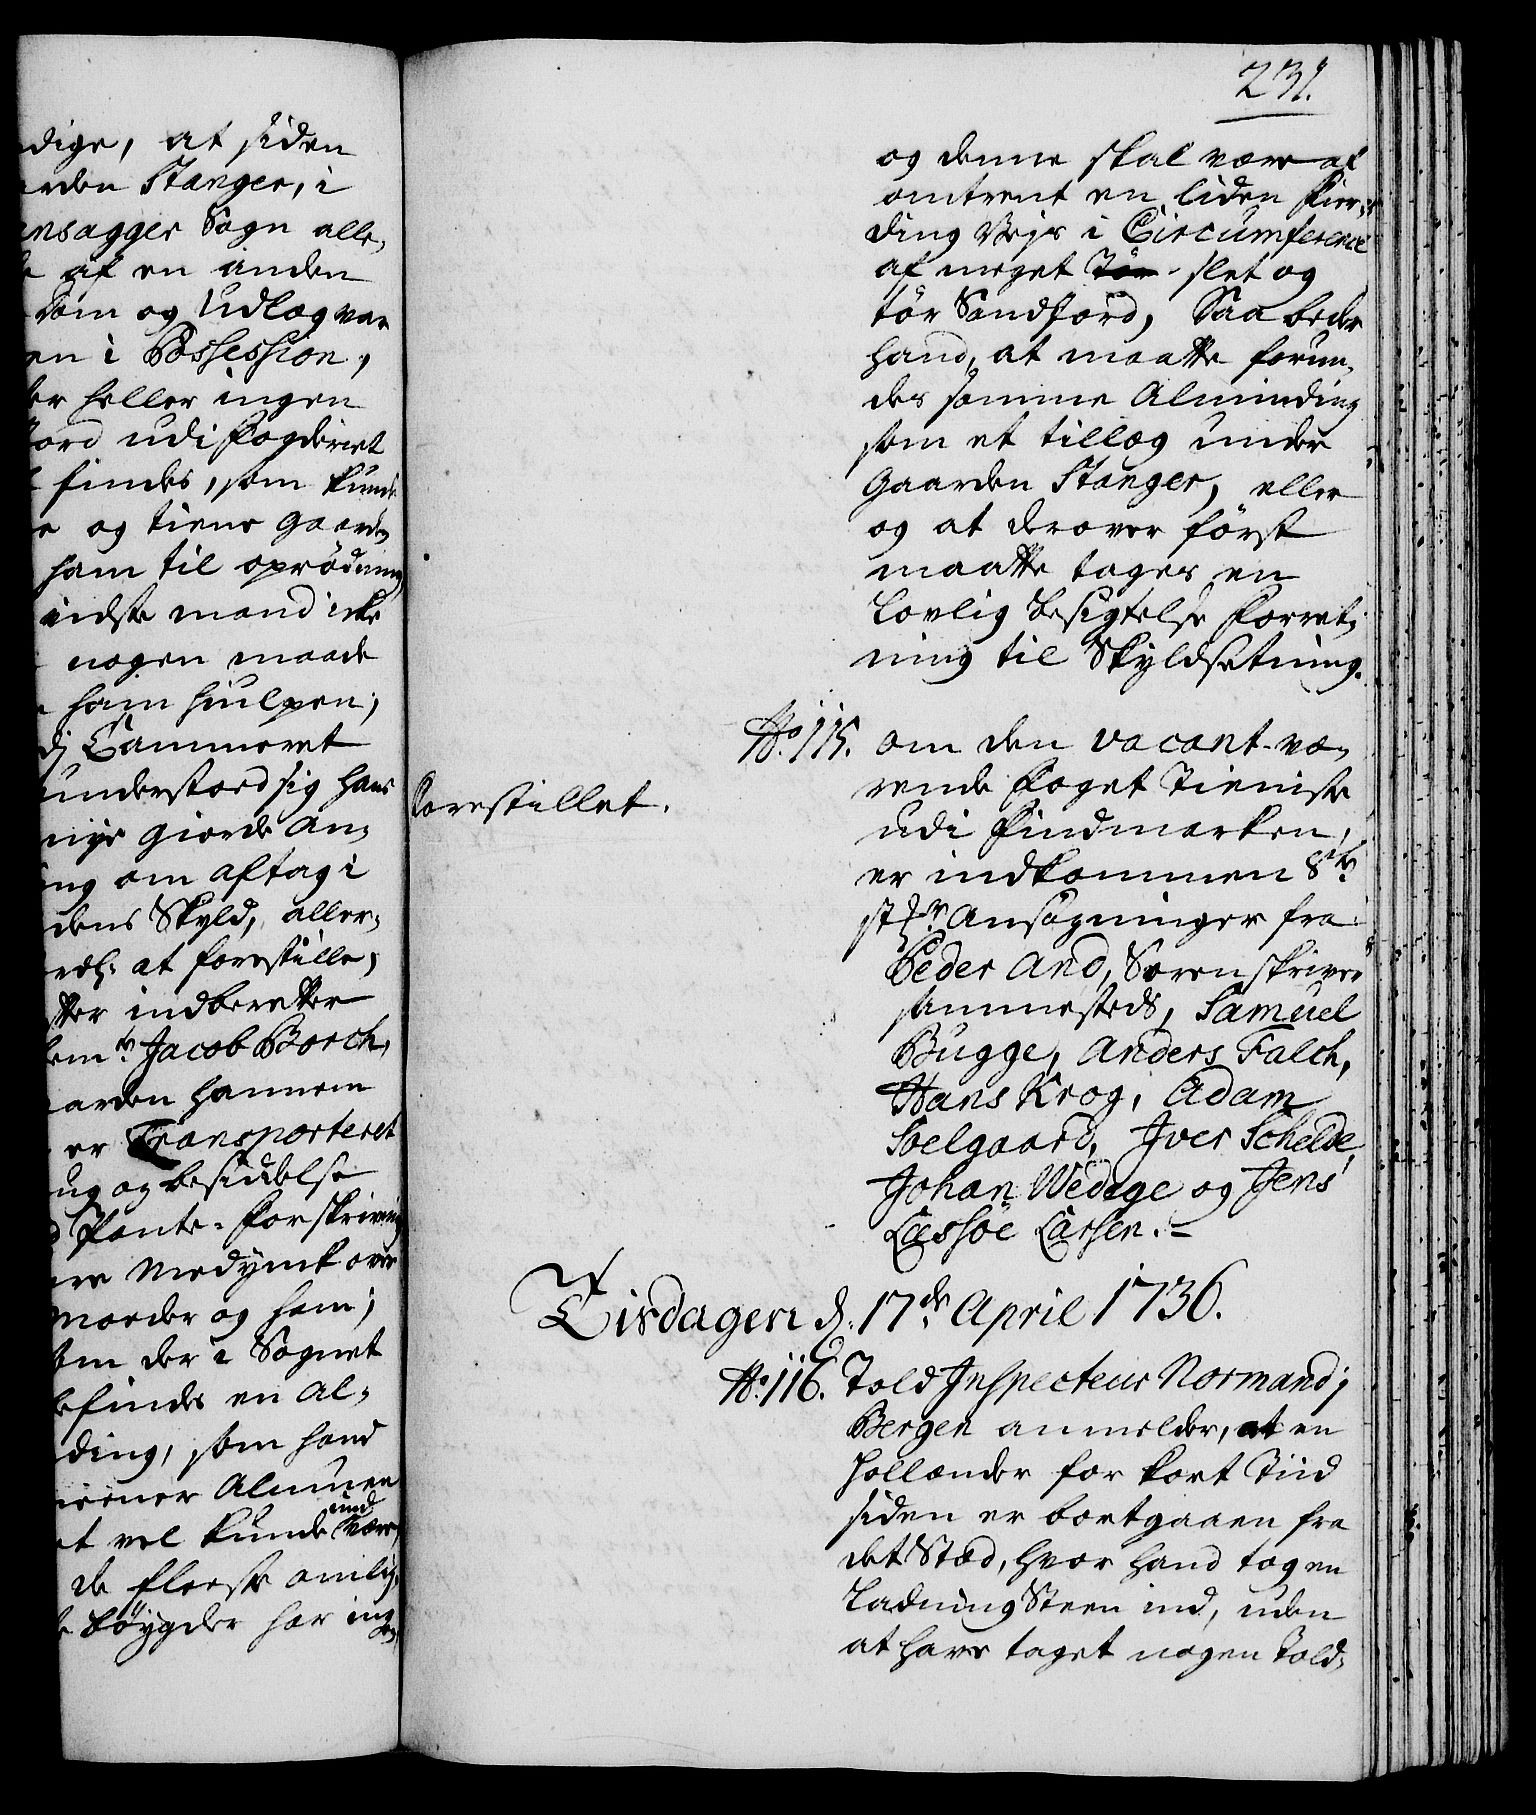 dige, at siden
arden Stanger, i
ansagger Sogn alle,
af en anden
Dom og Udlæg var
en i Possession,
der heller ingen
Jord udi Fogderiet
findes, som kunde
og tiene Gaarden
ham til oprödning
indste mand icke
nogen maade
ham hiulpen;
dj Cammeret
understoed sig hans
nye giorde An,
ing om aftag i
dens Skyld, aller,
at forestille,
indberetter
Jacob Borch,
aarden hannem
er Transporteret
ug og besiddelse
Pante-Forskrivning
Medynk over
moeder og ham;
om der i Sognet
befindes en Al,
ding, som hand
meener Almuen
et vel kunde und være,
de fleeste omlig,
böygder har ingen,
231.
og denne skal være af
omtrent en liden Fier,
ding Vejs i Circumference
af meget Tör slet og
tör Sandjord, Saa beder
hand, at maatte forun,
des samme Alminding
som et tillæg under
Gaarden Stanger, eller
og at derover först
maatte tages en
Lovlig Besigtelse Forret,
ning til Skyldsetning.
No. 115. om den vacant-væ,
rende Foget Tieniste
Forestillet.
udi Findmarken,
er indkommen 8te
st: Ansögninger fra
Peder And, Sorenskriver
sammesteds, Samuel
Bugge, Anders Falch,
Hans Krog, Adam
Soelgaard, Iver Schelde,
Johan Wedege og Jens
Læssöe Larsen.-
Tirsdagen d. 17de April 1736.
No. 116. Told Inspecteur Normand j
Bergen anmelder, at en
Hollænder for kort Tiid
siden er bortgaaen fra
det Stæd, hvor hand tog en
Ladning Steen ind, uden
at have taget nogen Told,